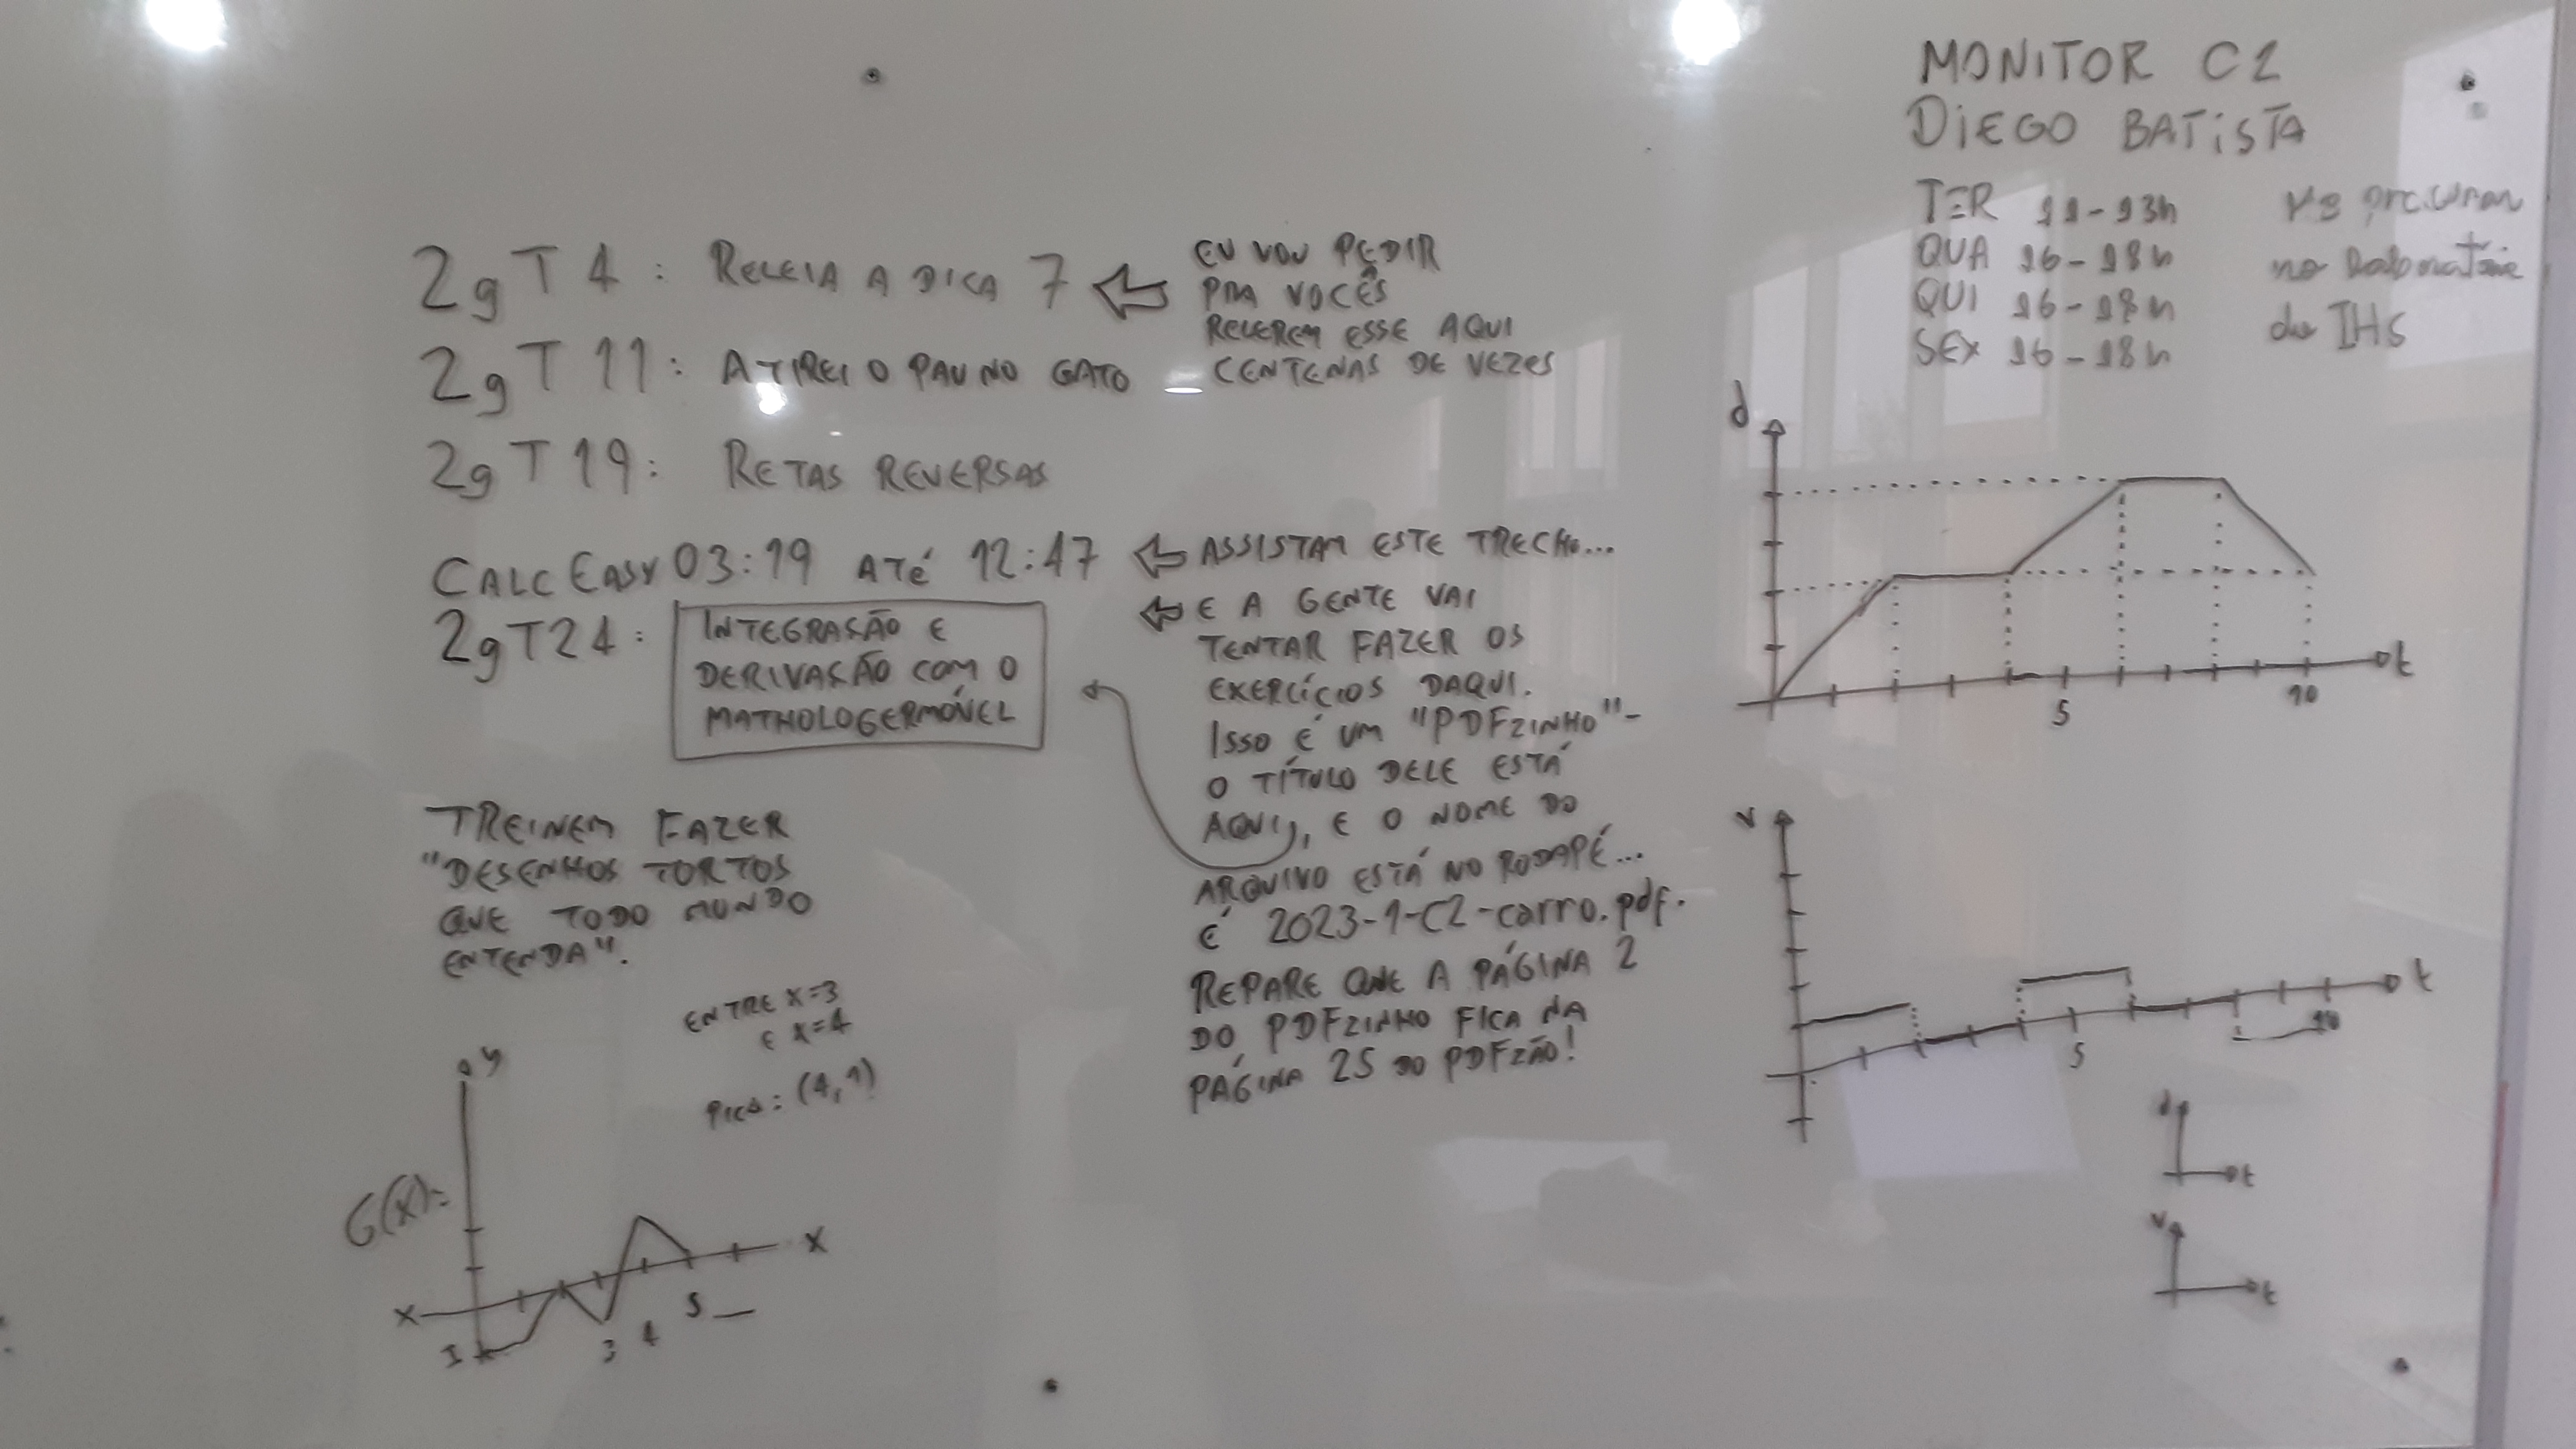 MONITOR C1
DIEGO BATISTA
TER 11-13h
QUA 16-18h
QUI 16-18h
SEX 16-18h
procurar
no laboratório
do IHS
2gT4: RELEIA A DICA 7
EU VOU PEDIR
PRA VOCÊS
RELEREM ESSE AQUI
CENTENAS DE VEZES
2gT11: ATIREI O PAU NO GATO
2gT19: RETAS REVERSAS
CALCEASY 03:19 ATÉ 12:47
ASSISTAM ESTE TRECHO...
2gT24: INTEGRAÇÃO E
DERIVAÇÃO COM O
MATHOLOGERMÓVEL
E A GENTE VAI
TENTAR FAZER OS
EXERCÍCIOS DAQUI.
ISSO É UM "PDFZINHO" -
O TÍTULO DELE ESTÁ
AQUI, E O NOME DO
ARQUIVO ESTÁ NO RODAPÉ...
É 2023-1-C2-carro.pdf.
REPARE QUE A PÁGINA 2
DO PDFZINHO FICA NA
PÁGINA 25 DO PDFZÃO!
TREINEM FAZER
"DESENHOS TORTOS
QUE TODO MUNDO
ENTENDA".
ENTRE X=3
E X=4
PICO: (4,1)
G(x)=
y
x
x
3 4 5
d
t
5
10
v
t
5
10
d
t
v
t